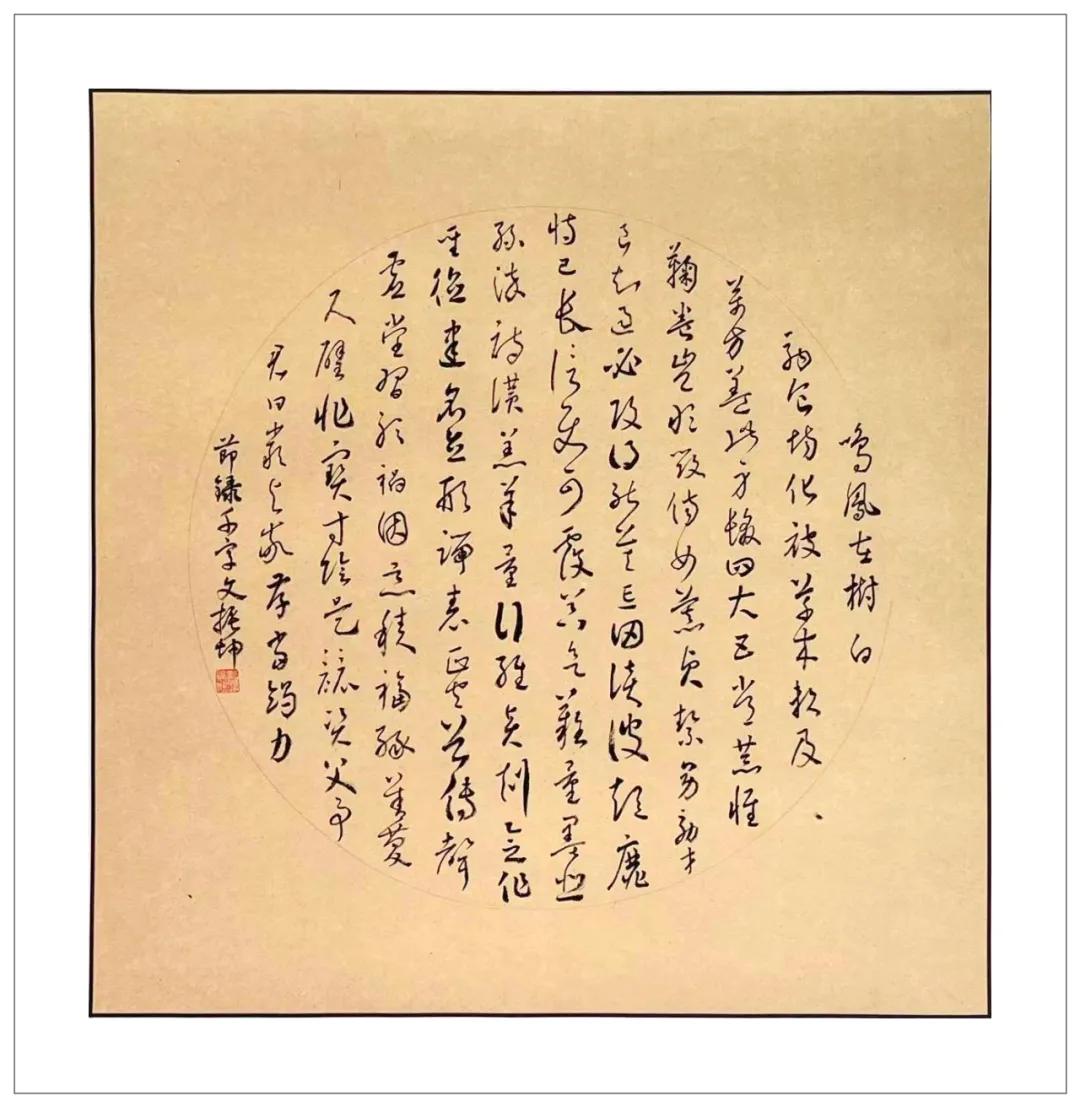 鳴鳳在樹白
駒食場化被草木賴及
萬方蓋此身髮四大五常恭惟
鞠養豈敢毀傷女慕貞絜男效才
良知過必改得能莫忘罔談彼短靡
恃己長信使可覆器欲難量墨悲
絲染詩讚羔羊景行維賢剋念作
聖德建名立形端表正空谷傳聲
虛堂習聽禍因惡積福緣善慶
尺璧非寶寸陰是競資父事
君曰嚴與敬孝當竭力
節錄千字文振坤